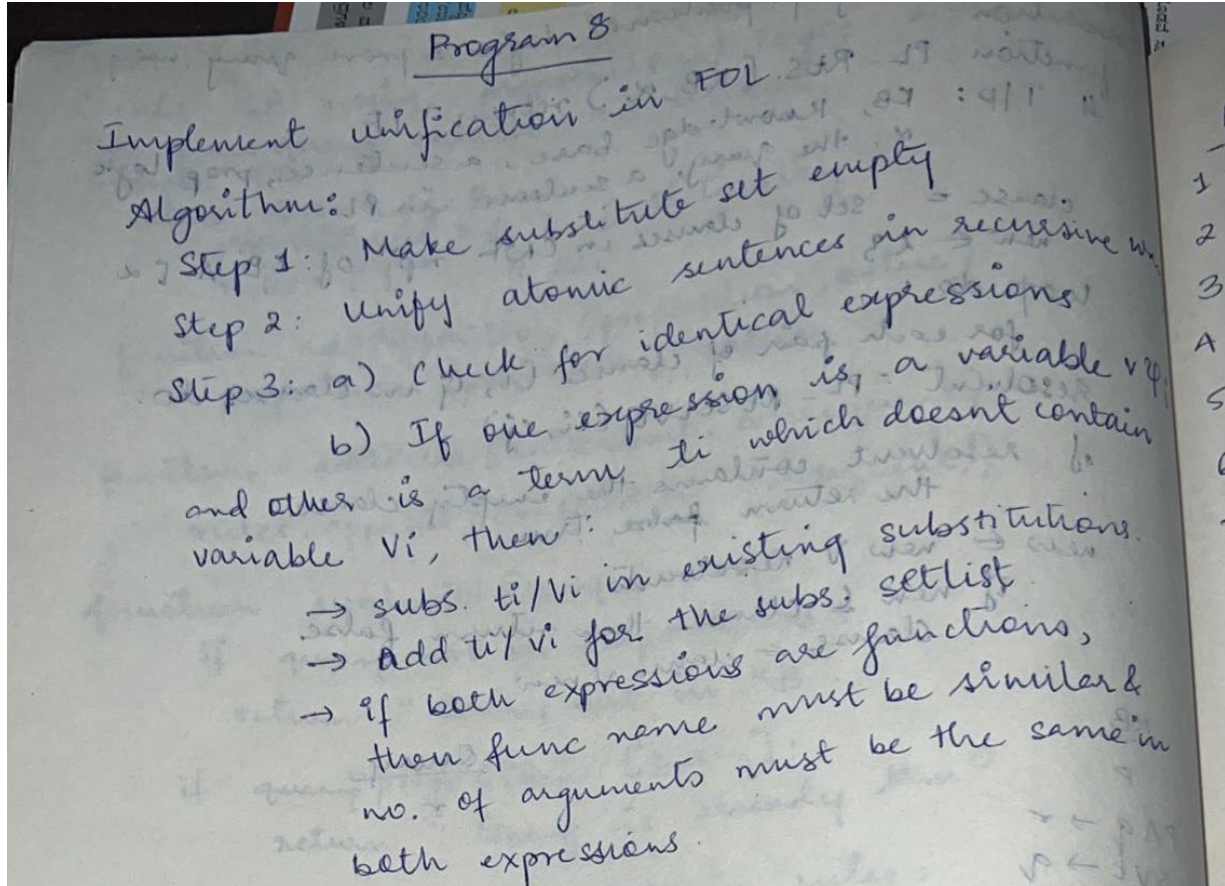 Program 8
Implement unification in FOL.
Algorithm:
Step 1: Make substitute set empty
Step 2: Unify atomic sentences in recursive
Step 3: a) Check for identical expressions
b) If one expression is a variable vi
and other is a term ti which doesnt contain
variable vi, then:
→ subs. ti/vi in existing substitutions.
→ add ti/vi for the subs. setlist
→ if both expressions are functions,
then func name must be similar &
no. of arguments must be the same in
both expressions.
1
2
3
4
5